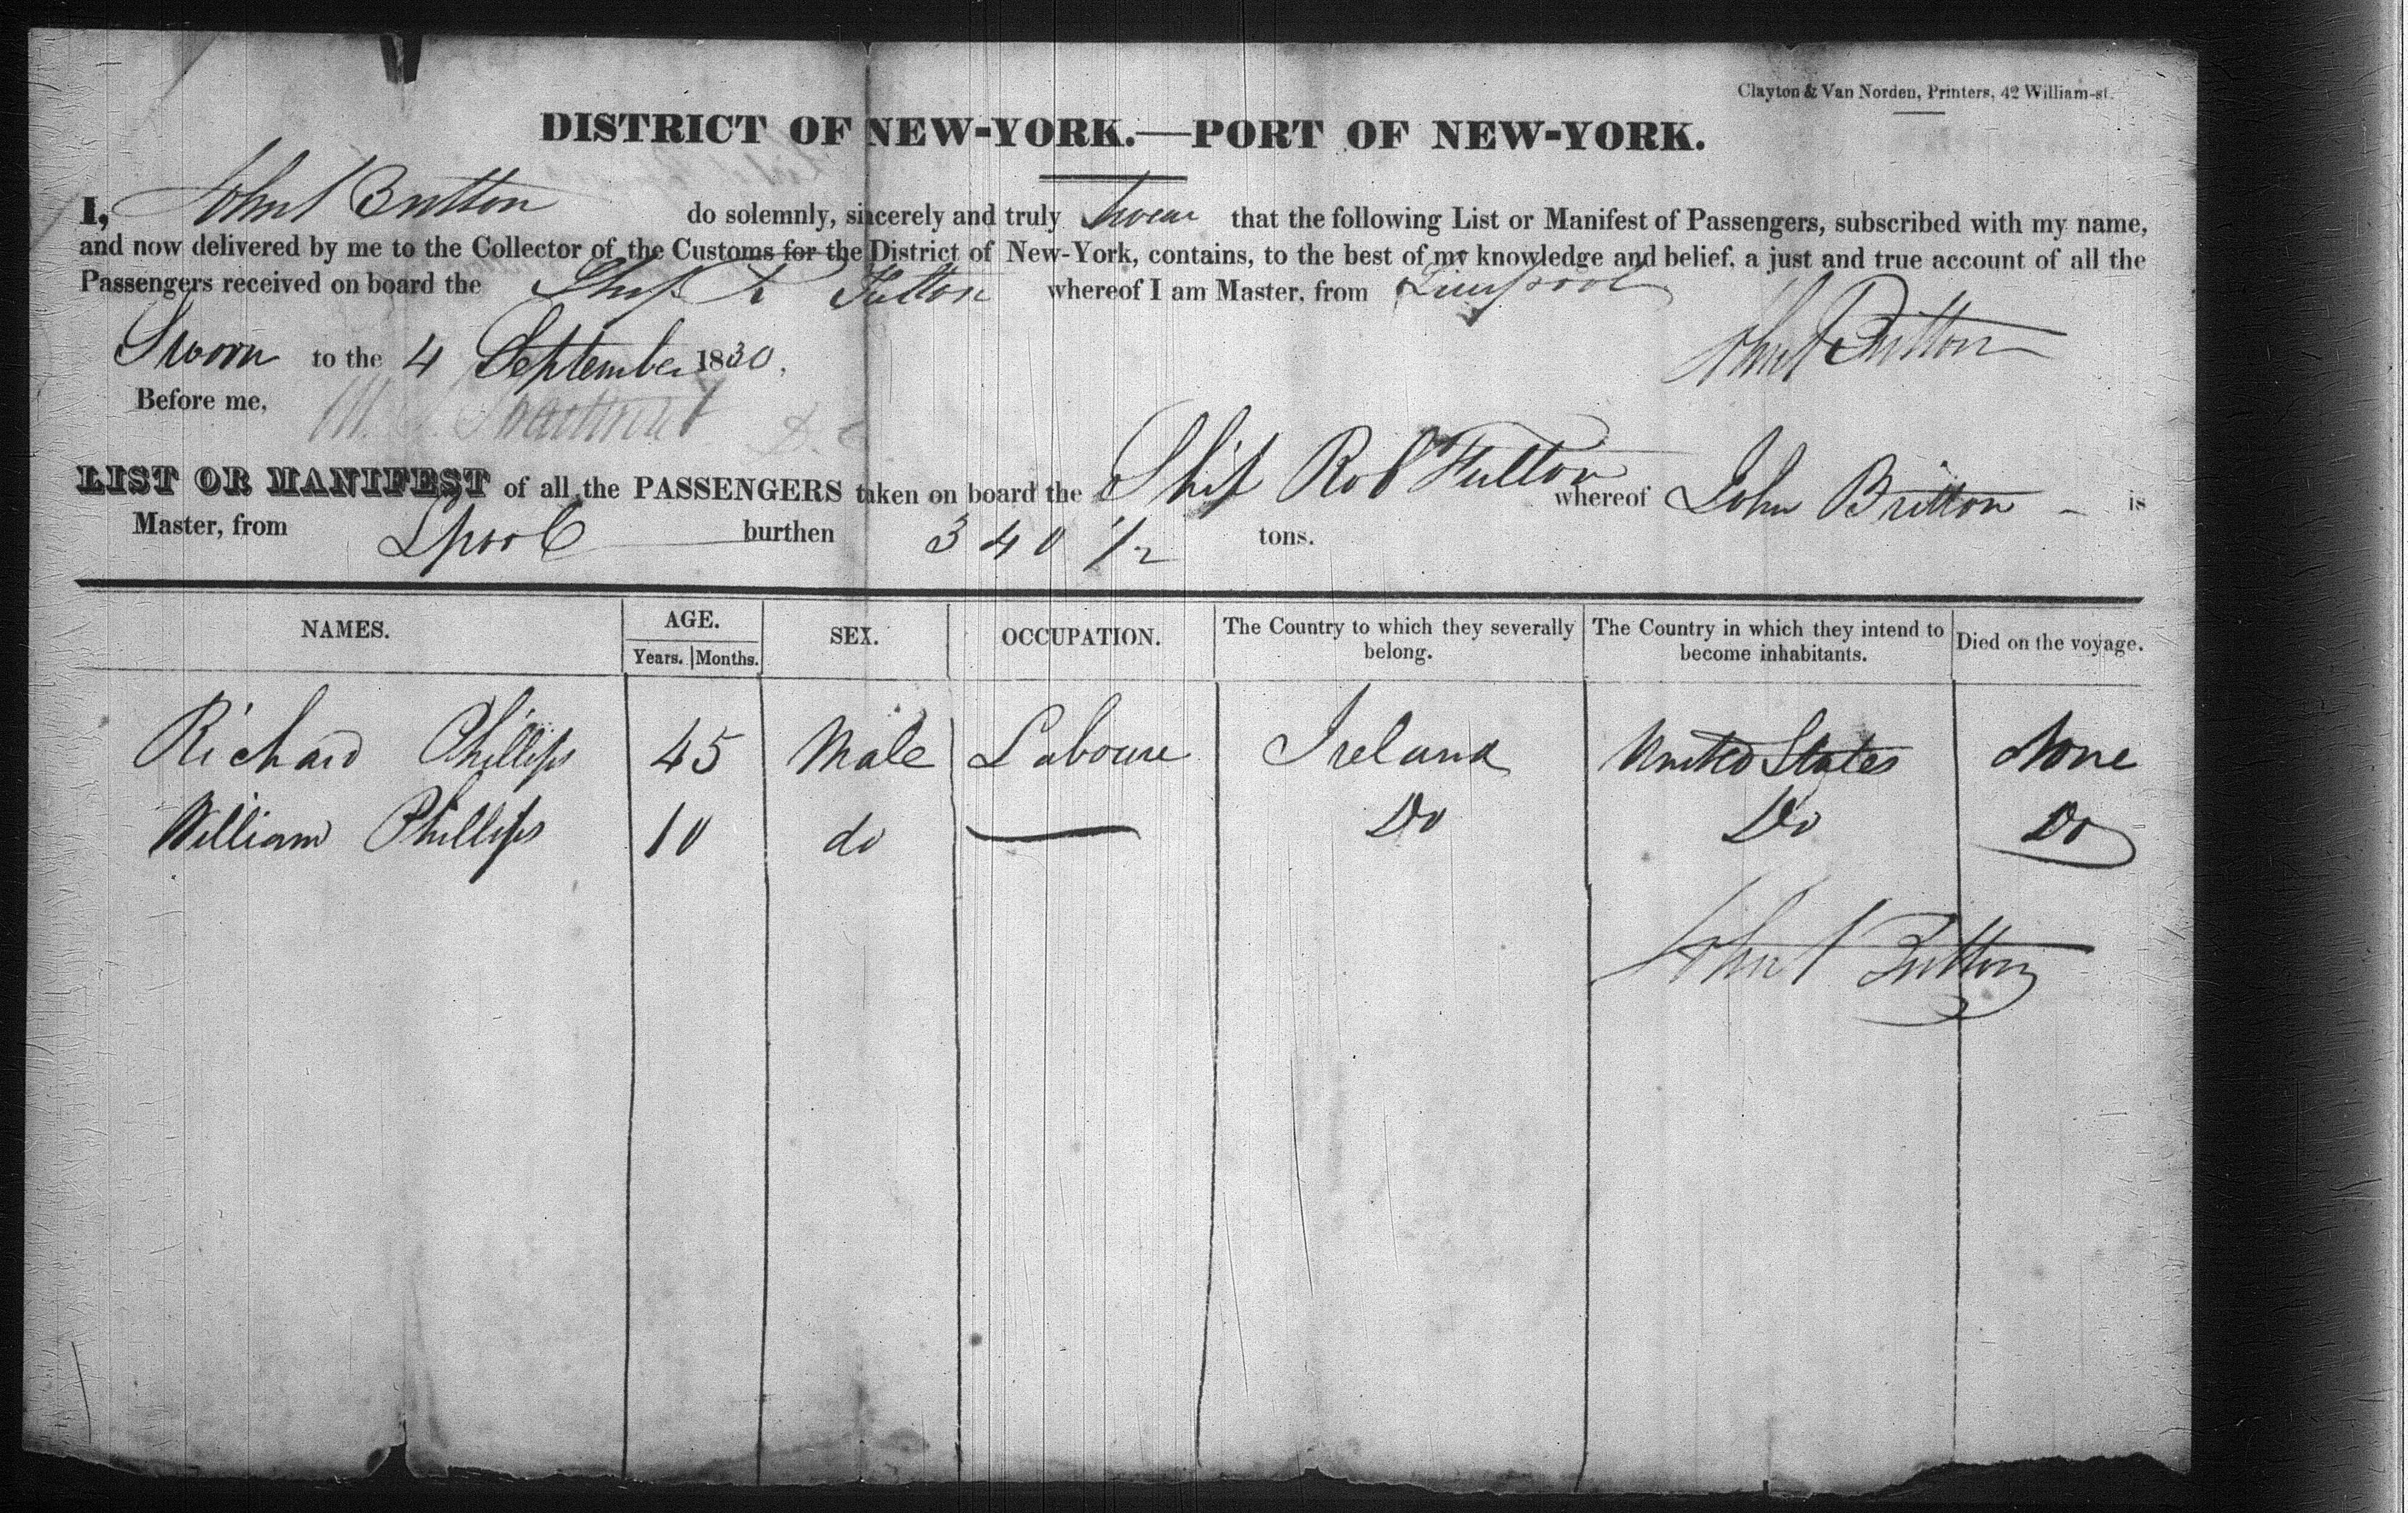 Clayton & Van Norden, Printers, 42 William-st.
DISTRICT OF NEW-YORK.—PORT OF NEW-YORK.
I, John Britton do solemnly, sincerely and truly swear that the following List or Manifest of Passengers, subscribed with my name,
and now delivered by me to the Collector of the Customs for the District of New-York, contains, to the best of my knowledge and belief, a just and true account of all the
Passengers received on board the Ship R Fulton whereof I am Master, from Liverpool
Sworn to the 4 September 1830. John Britton
Before me,
LIST OR MANIFEST of all the PASSENGERS taken on board the Ship Rob Fulton whereof John Britton - is
Master, from Lpool burthen 340 1/2 tons.
NAMES. AGE. Years. Months. SEX. OCCUPATION. The Country to which they severally belong. The Country in which they intend to become inhabitants. Died on the voyage.
Richard Phillips 45 Male Laboure Ireland United States None
William Phillips 10 do — Do Do Do
John Britton